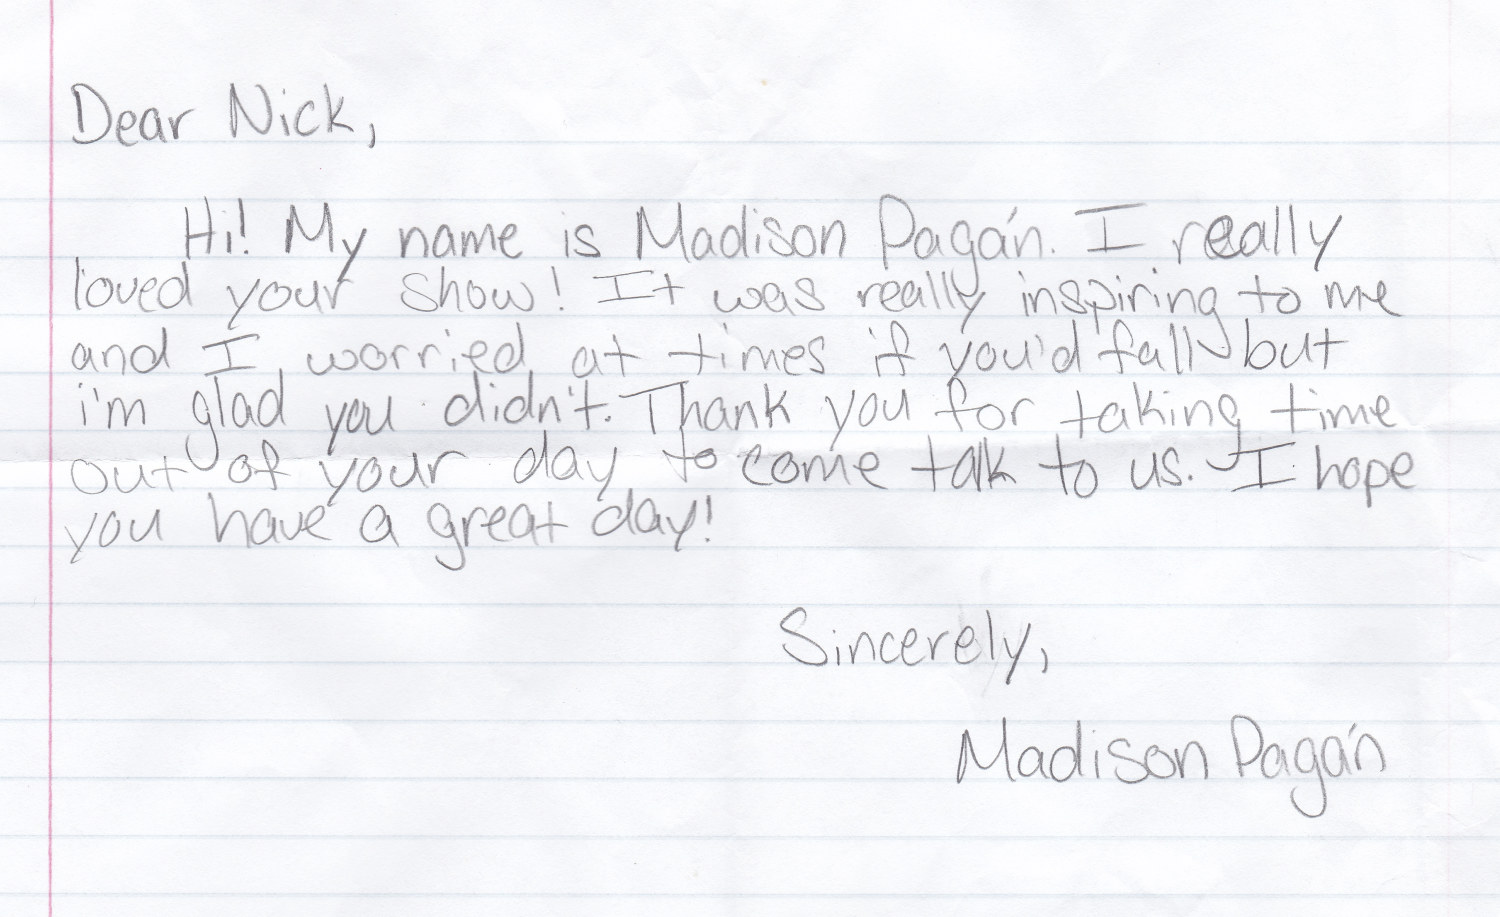 Dear Nick,
Hi! My name is Madison Pagán. I really
loved your show! It was really inspiring to me
and I worried at times if you'd fall but
i'm glad you didn't. Thank you for taking time
out of your day to come talk to us. I hope
you have a great day!
Sincerely,
Madison Pagán